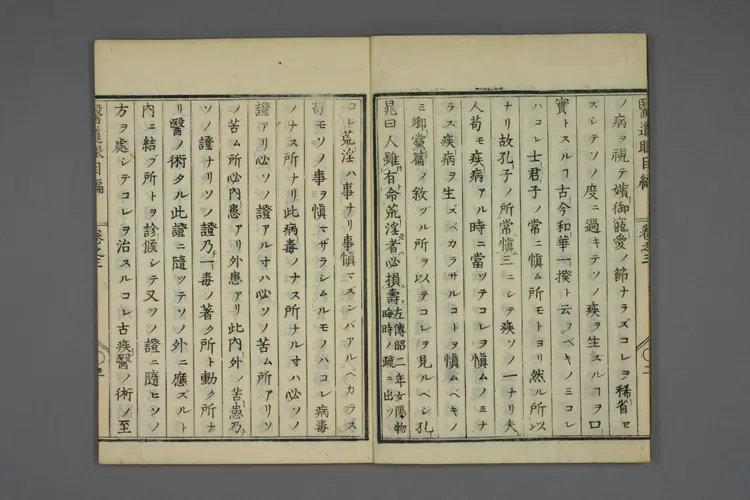 醫道眼目編 卷之三 二
ノ病ヲ視テ嬪御寵愛ノ節ナラズコレヲ稀省セ
ズシテソノ度ニ過キテソノ疾ヲ生ズルヿヲ口
實トスルヿ古今和華一揆ト云フベキノミコレ
ハコレ士君子ノ常ニ愼ム所モトヨリ然ル所以
ナリ故孔子ノ所常愼三ニシテ疾ソノ一ナリ夫
人苟モ疾病アル時ニ當ツテコレヲ愼ムノミナ
ラス疾病ヲ生ズベカラサルコトヲ愼ムベキノ
ミ鄉黨篇ノ敘ヅル所ヲ以テコレヲ見ルベシ孔
晁曰人雖有命荒淫者必損壽左傳昭二年女陽物晦時ノ疏ニ出ツ
コレ荒淫ハ事ナリ事愼マズンバアルベカラズ
苟モソノ事ヲ愼マザラシムルモノハコレ病毒
ノナス所ナリ此病毒ノナス所ナルオハ必ソノ
證アリ必ソノ證アルオハ必ソノ苦ム所アリソ
ノ苦ム所必內患アリ外患アリ此內外ノ苦患乃
ソノ證ナリソノ證乃一毒ノ著ク所ト動ク所ナ
リ醫ノ術タル此證ニ隨ツテソノ外ニ應ズルト
內ニ結ブ所トヲ診候シテ又ソノ證ニ隨ヒソノ
方ヲ處シテコレヲ治スルコレ古疾醫ノ術ノ至
醫道眼目編 卷之三